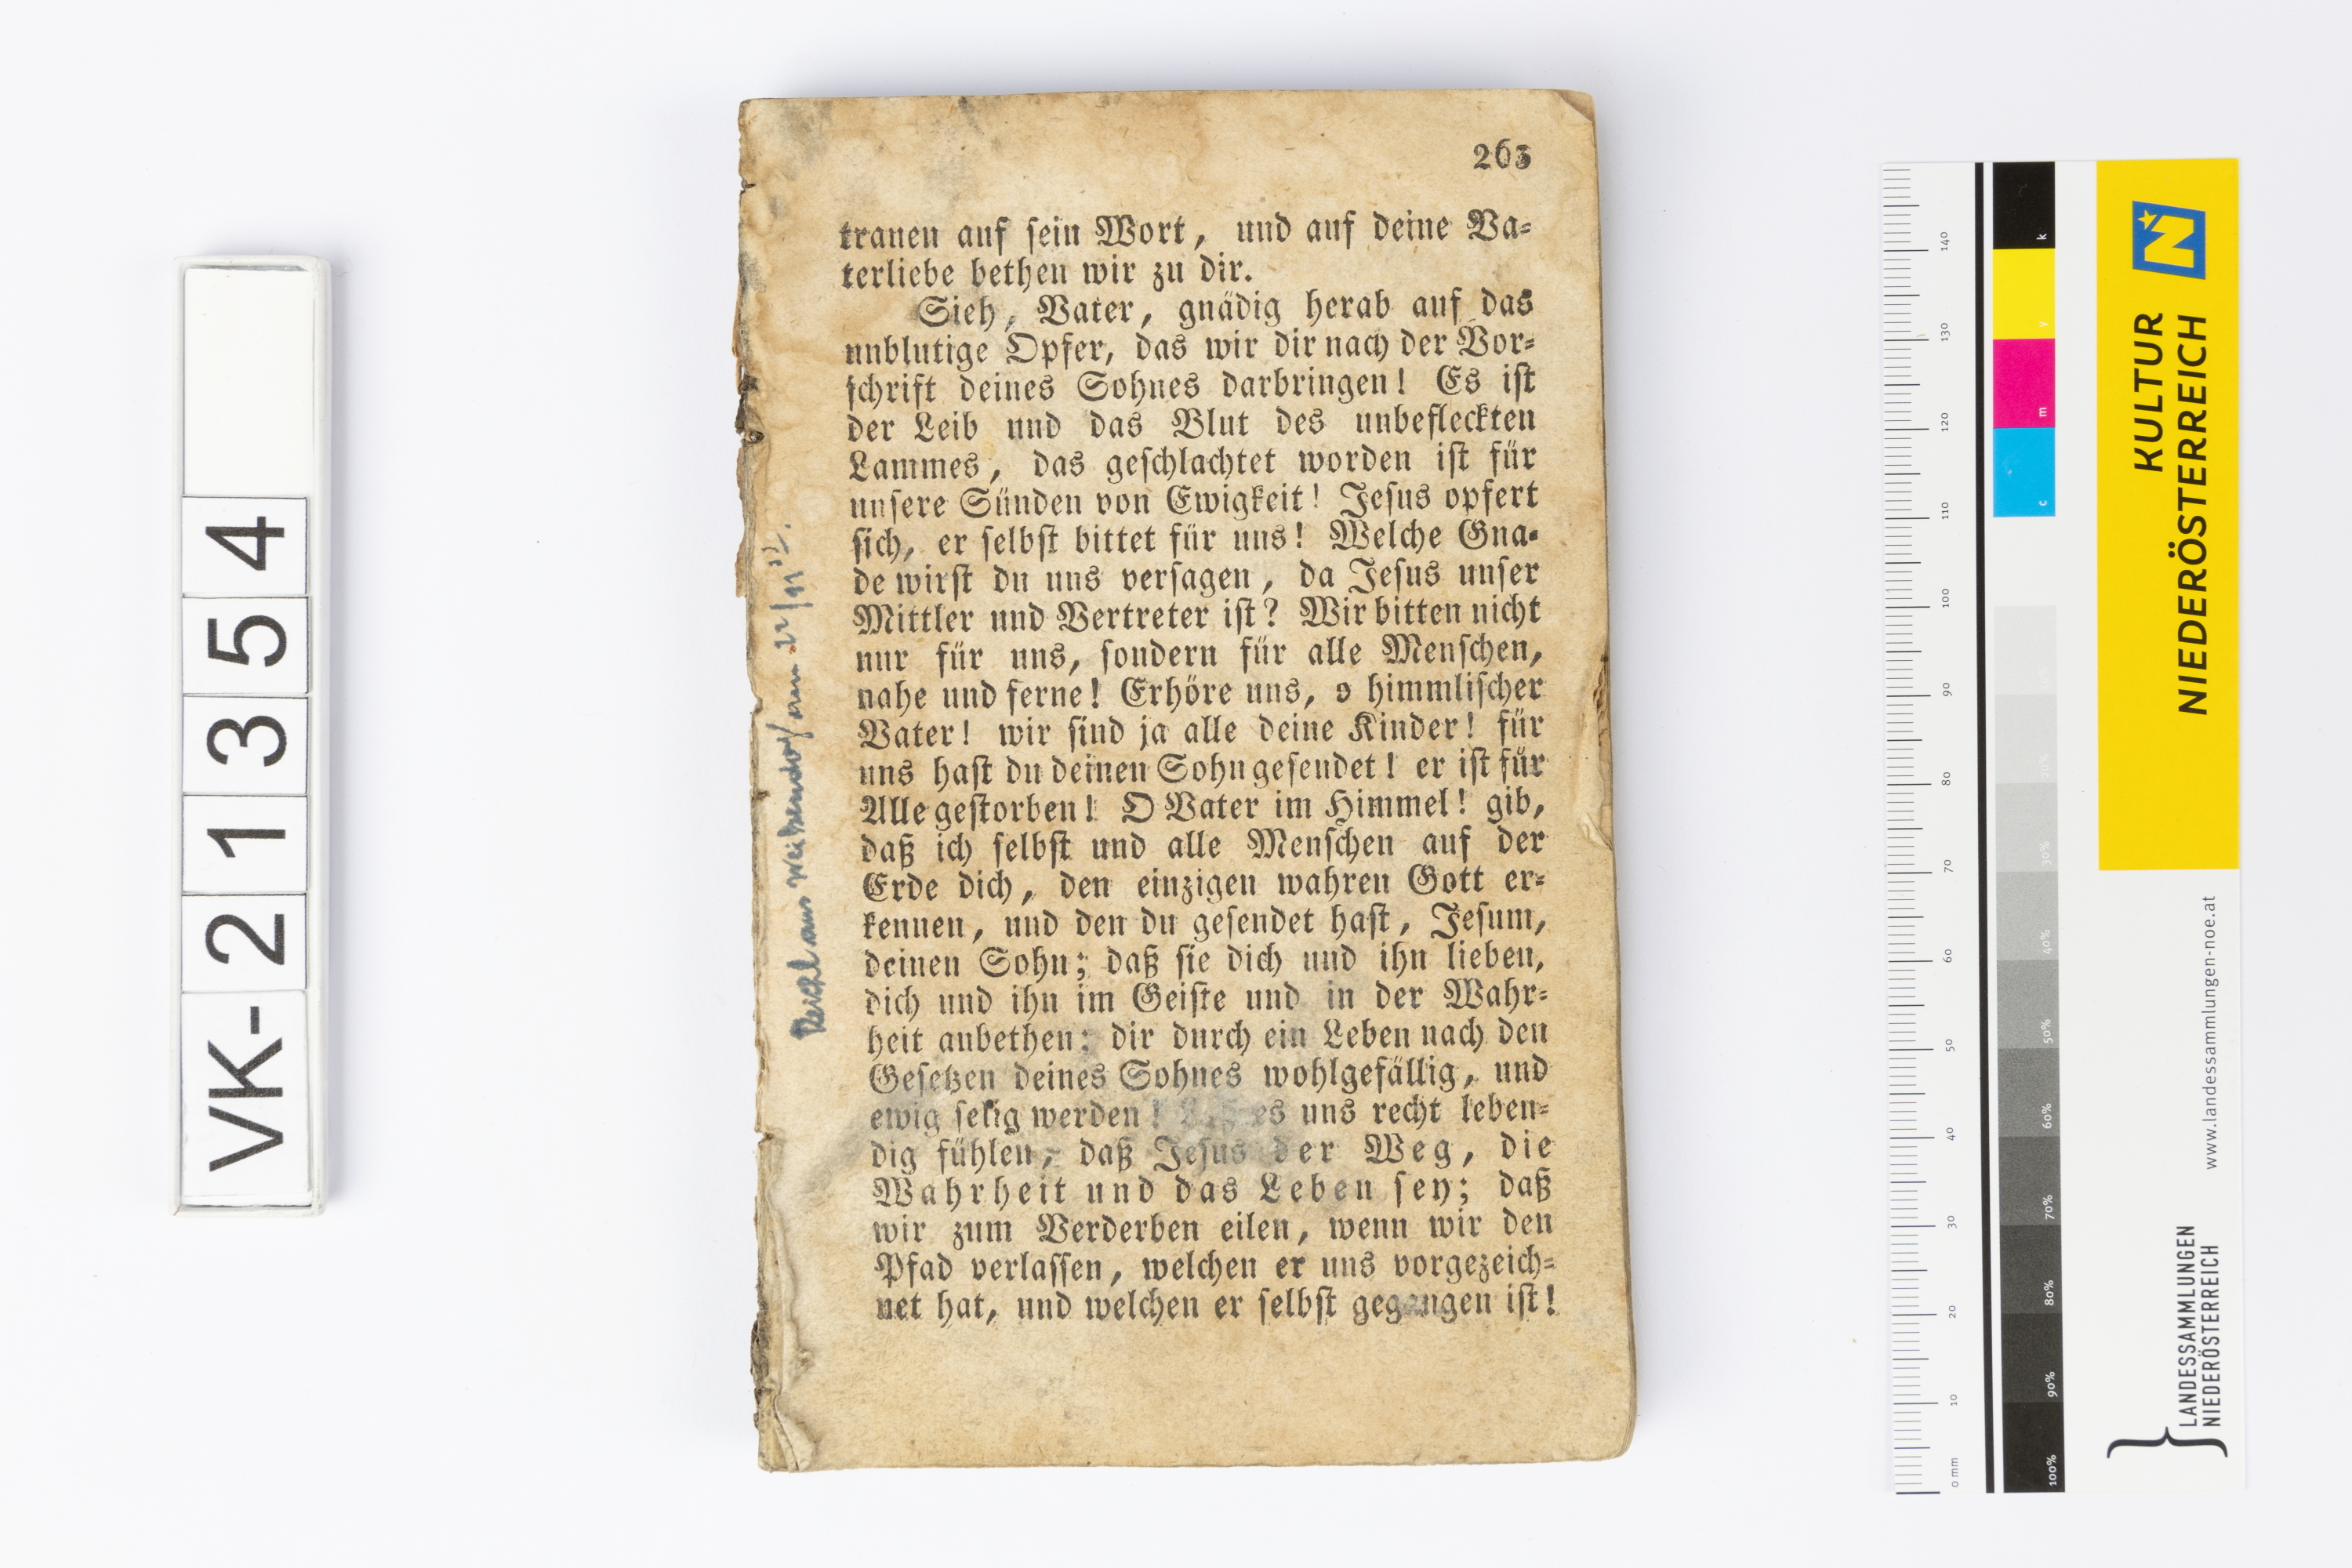 VK-21354
263
trauen auf ſein Wort, und auf deine Va=
terliebe bethen wir zu dir.
Sieh, Vater, gnädig herab auf das
unblutige Opfer, das wir dir nach der Vor=
ſchrift deines Sohnes darbringen! Es iſt
der Leib und das Blut des unbefleckten
Lammes, das geſchlachtet worden iſt für
unſere Sünden von Ewigkeit! Jeſus opfert
ſich, er ſelbſt bittet für uns! Welche Gna=
de wirſt du uns verſagen, da Jeſus unſer
Mittler und Vertreter iſt? Wir bitten nicht
nur für uns, ſondern für alle Menſchen,
nahe und ferne! Erhöre uns, o himmliſcher
Vater! wir ſind ja alle deine Kinder! für
uns haſt du deinen Sohn geſendet! er iſt für
Alle geſtorben! O Vater im Himmel! gib,
daß ich ſelbſt und alle Menſchen auf der
Erde dich, den einzigen wahren Gott er=
kennen, und den du geſendet haſt, Jeſum,
deinen Sohn; daß ſie dich und ihn lieben,
dich und ihn im Geiſte und in der Wahr=
heit anbethen; dir durch ein Leben nach den
Geſetzen deines Sohnes wohlgefällig, und
ewig ſelig werden! es uns recht leben=
dig fühlen, daß Jeſus der Weg, die
Wahrheit und das Leben ſey; daß
wir zum Verderben eilen, wenn wir den
Pfad verlaſſen, welchen er uns vorgezeich=
net hat, und welchen er ſelbſt gegangen iſt!
aus am
KULTUR
NIEDERÖSTERREICH
www.landessammlungen-noe.at
LANDESSAMMLUNGEN
NIEDERÖSTERREICH
k
y
m
c
20%
30%
40%
50%
60%
70%
80%
90%
100%
140
130
120
110
100
90
80
70
60
50
40
30
20
10
0 mm